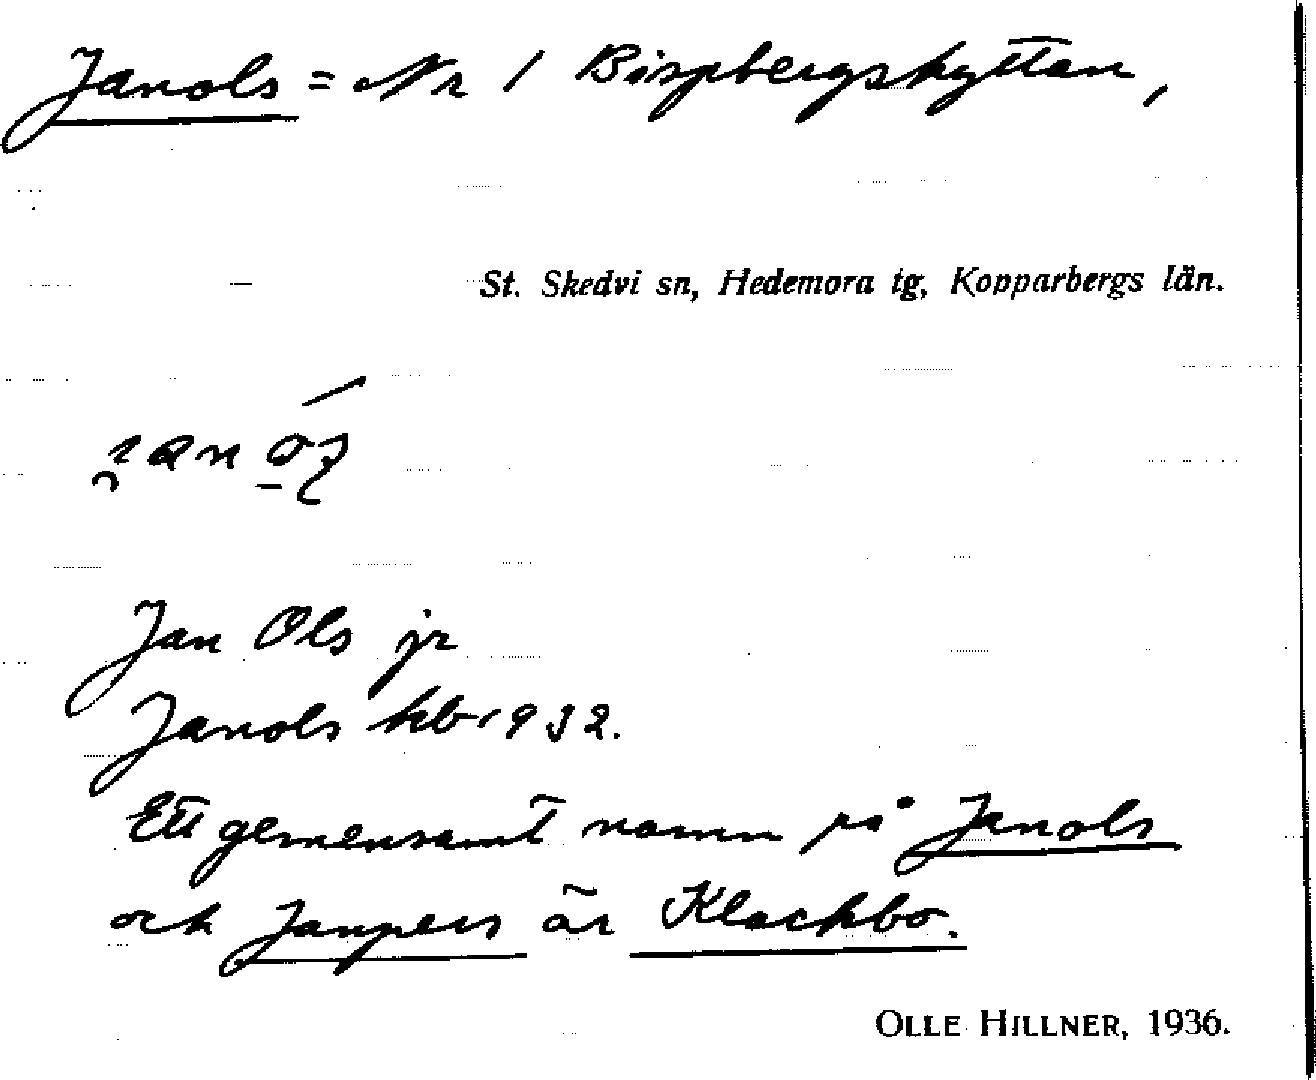 Janols = Nr 1 Bispbergshyttan,
St. Skedvi sn, Hedemora tg, Kopparbergs län.
Jan Ols jr
Janols kb 1932.
Ett gemensamt namn på Janols
och Janpers är Klackbo.
OLLE HILLNER, 1936.